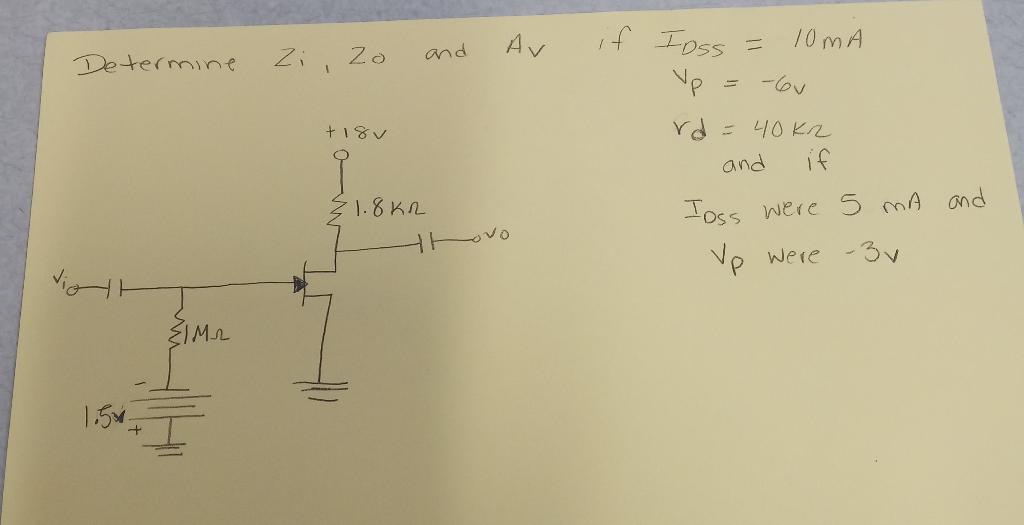 Determine Zi, Zo and Av if IDSS = 10mA
Vp = -6v
rd = 40KΩ
and if
IDSS were 5 mA and
Vp were -3v
+18v
1.8KΩ
vo
Vi
1MΩ
-
1.5v
+